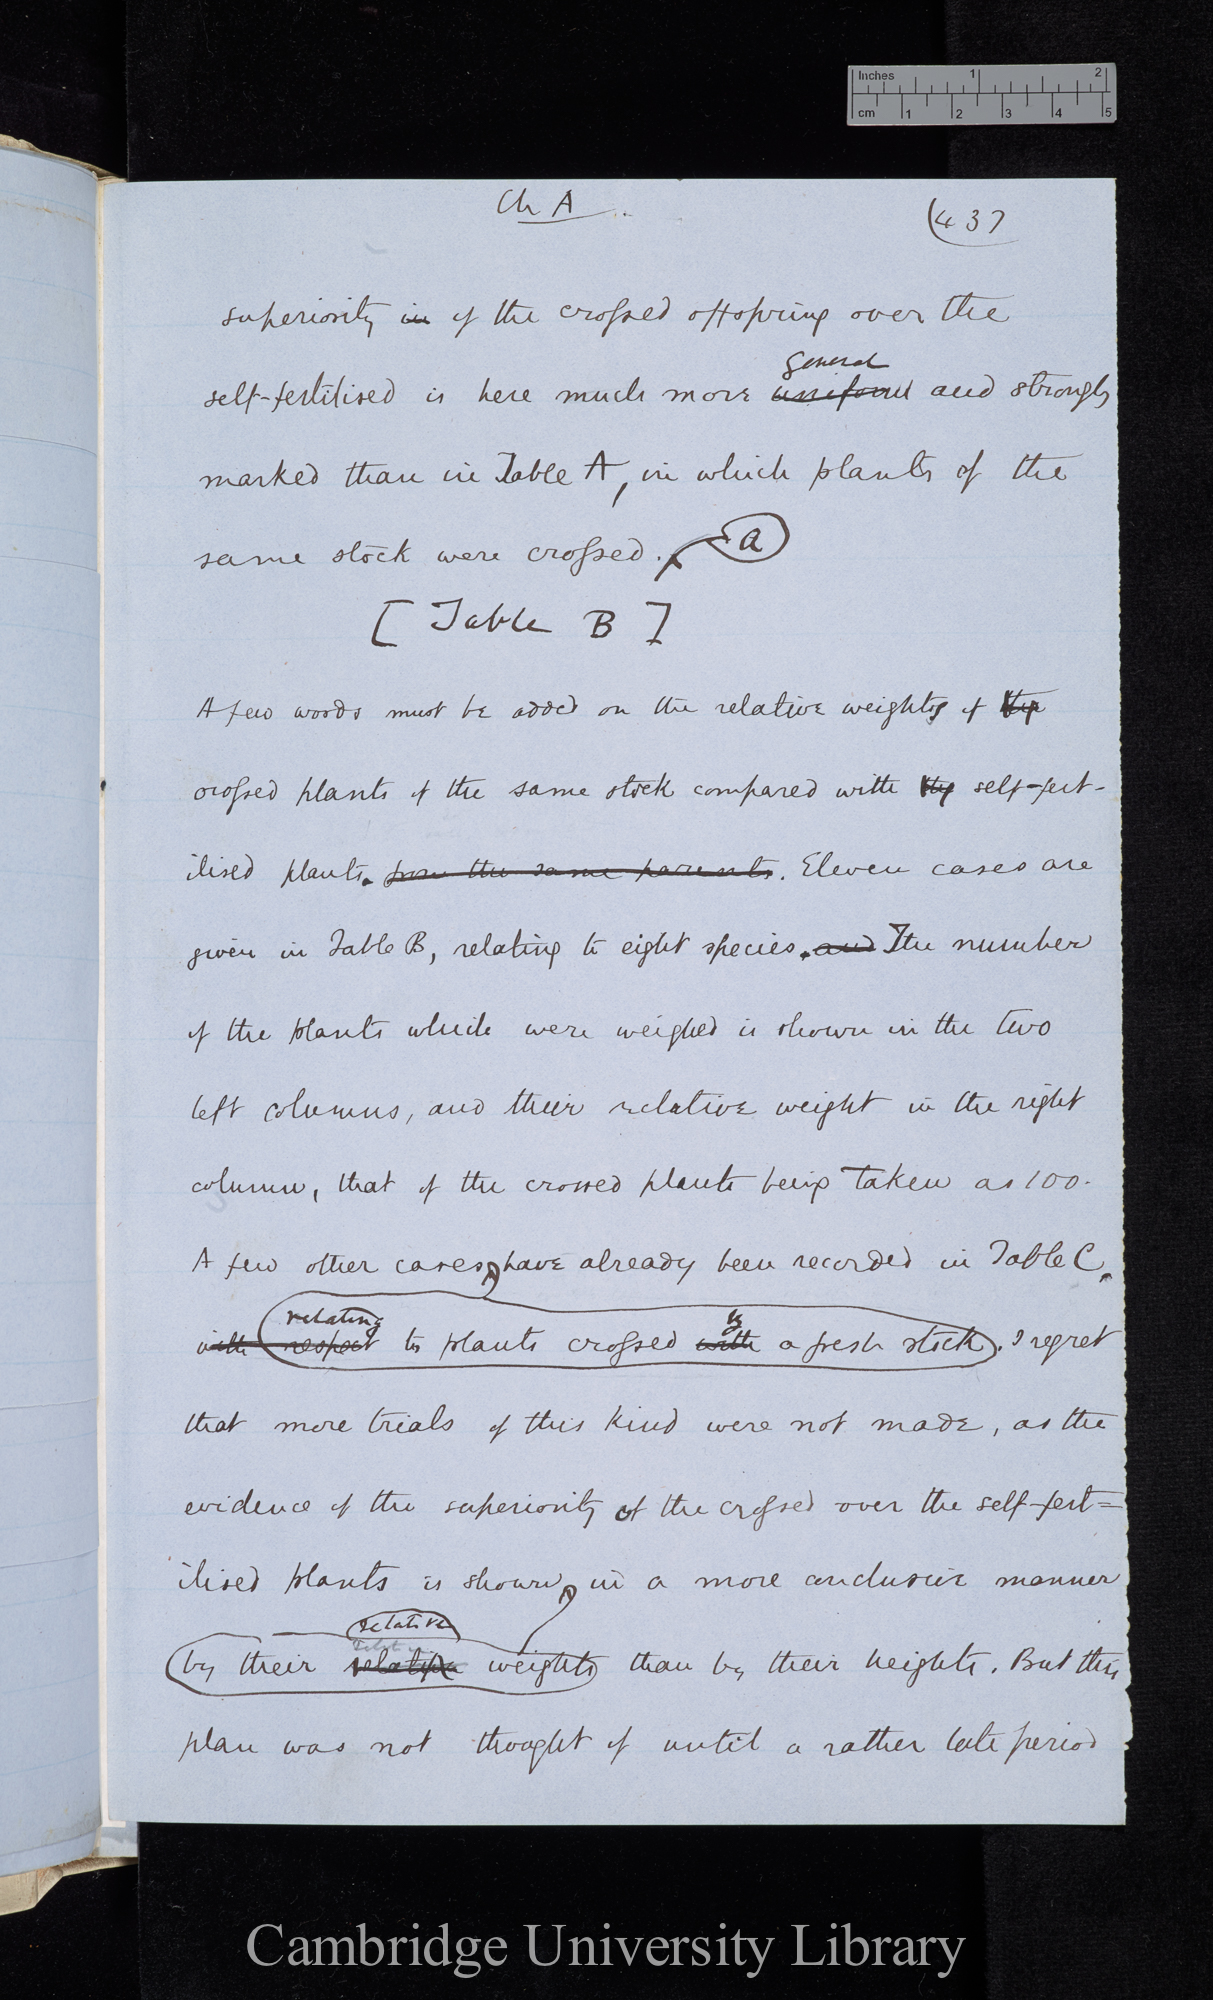 Inches 1 2
cm 1 2 3 4 5
Ch A
(437
superiority in of the crossed offspring over the
general
self-fertilised is here much more uniform and strongly
marked than in Table A, in which plants of the
same stock were crossed. a
[Table B]
A few words must be added on the relative weights of the
crossed plants of the same stock compared with the self-fert-
ilised plants. from the same parents. Eleven cases are
given in Table B, relating to eight species. and The number
of the plants which were weighed is shown in the two
left columns, and their relative weight in the right
column, that of the crossed plants being taken as 100.
A few other cases, have already been recorded in Table C.
relating by
with respect to plants crossed with a fresh stock. I regret
that more trials of this kind were not made, as the
evidence of the superiority of the crossed over the self-fert=
ilised plants is shown, in a more conclusive manner
relative
by their relative weights than by their heights. But this
plan was not thought of until a rather late period
Cambridge University Library